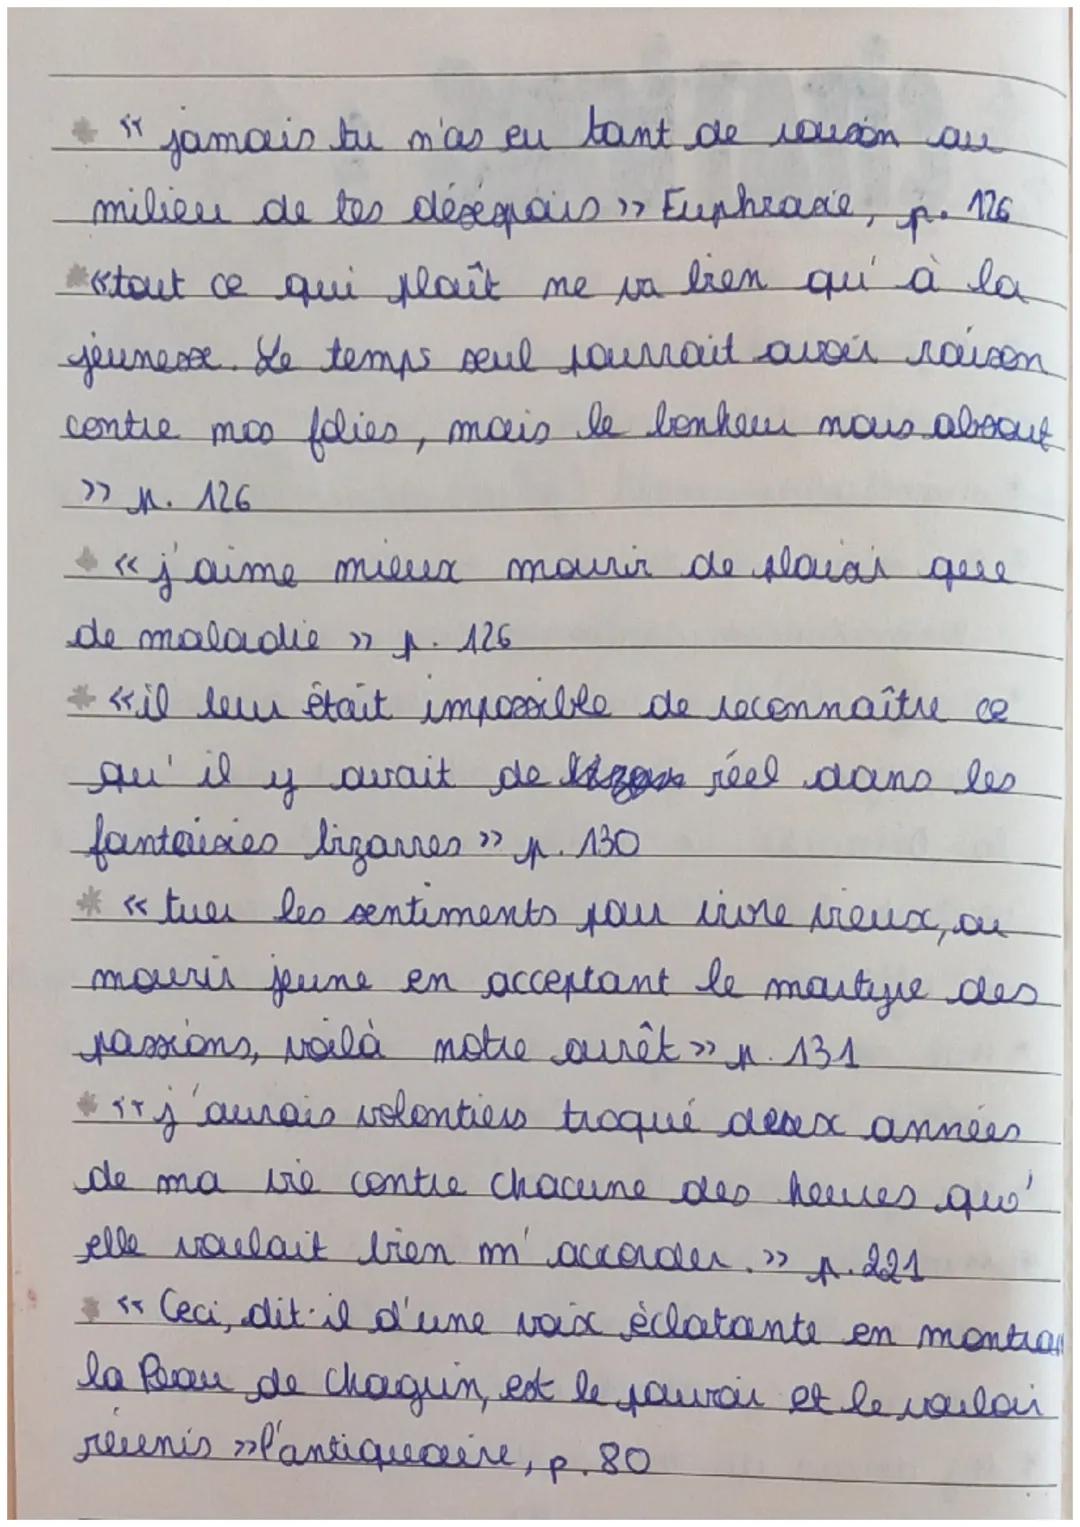 * « jamais tu n'as eu tant de raison au
milieu de tes désespoirs » Euphrasie, p. 126
* « tout ce qui plaît ne va bien qu'à la
jeunesse. Le temps seul pourrait avoir raison
contre mos folies, mais le bonheur nous absout
» p. 126
* « j'aime mieux mourir de plaisir que
de maladie » p. 126
* « il leur était impossible de reconnaître ce
qu'il y avait de réel dans les
fantaisies bizarres » p. 130
* « tuer les sentiments pour vivre vieux, ou
mourir jeune en acceptant le martyre des
passions, voilà notre arrêt » p. 131
* « j'aurais volontiers troqué deux années
de ma vie contre chacune des heures qu'
elle voulait bien m'accorder. » p. 221
* « Ceci, dit-il d'une voix éclatante en montran
la Peau de chagrin, est le pouvoir et le vouloir
réunis » l'antiquaire, p. 80